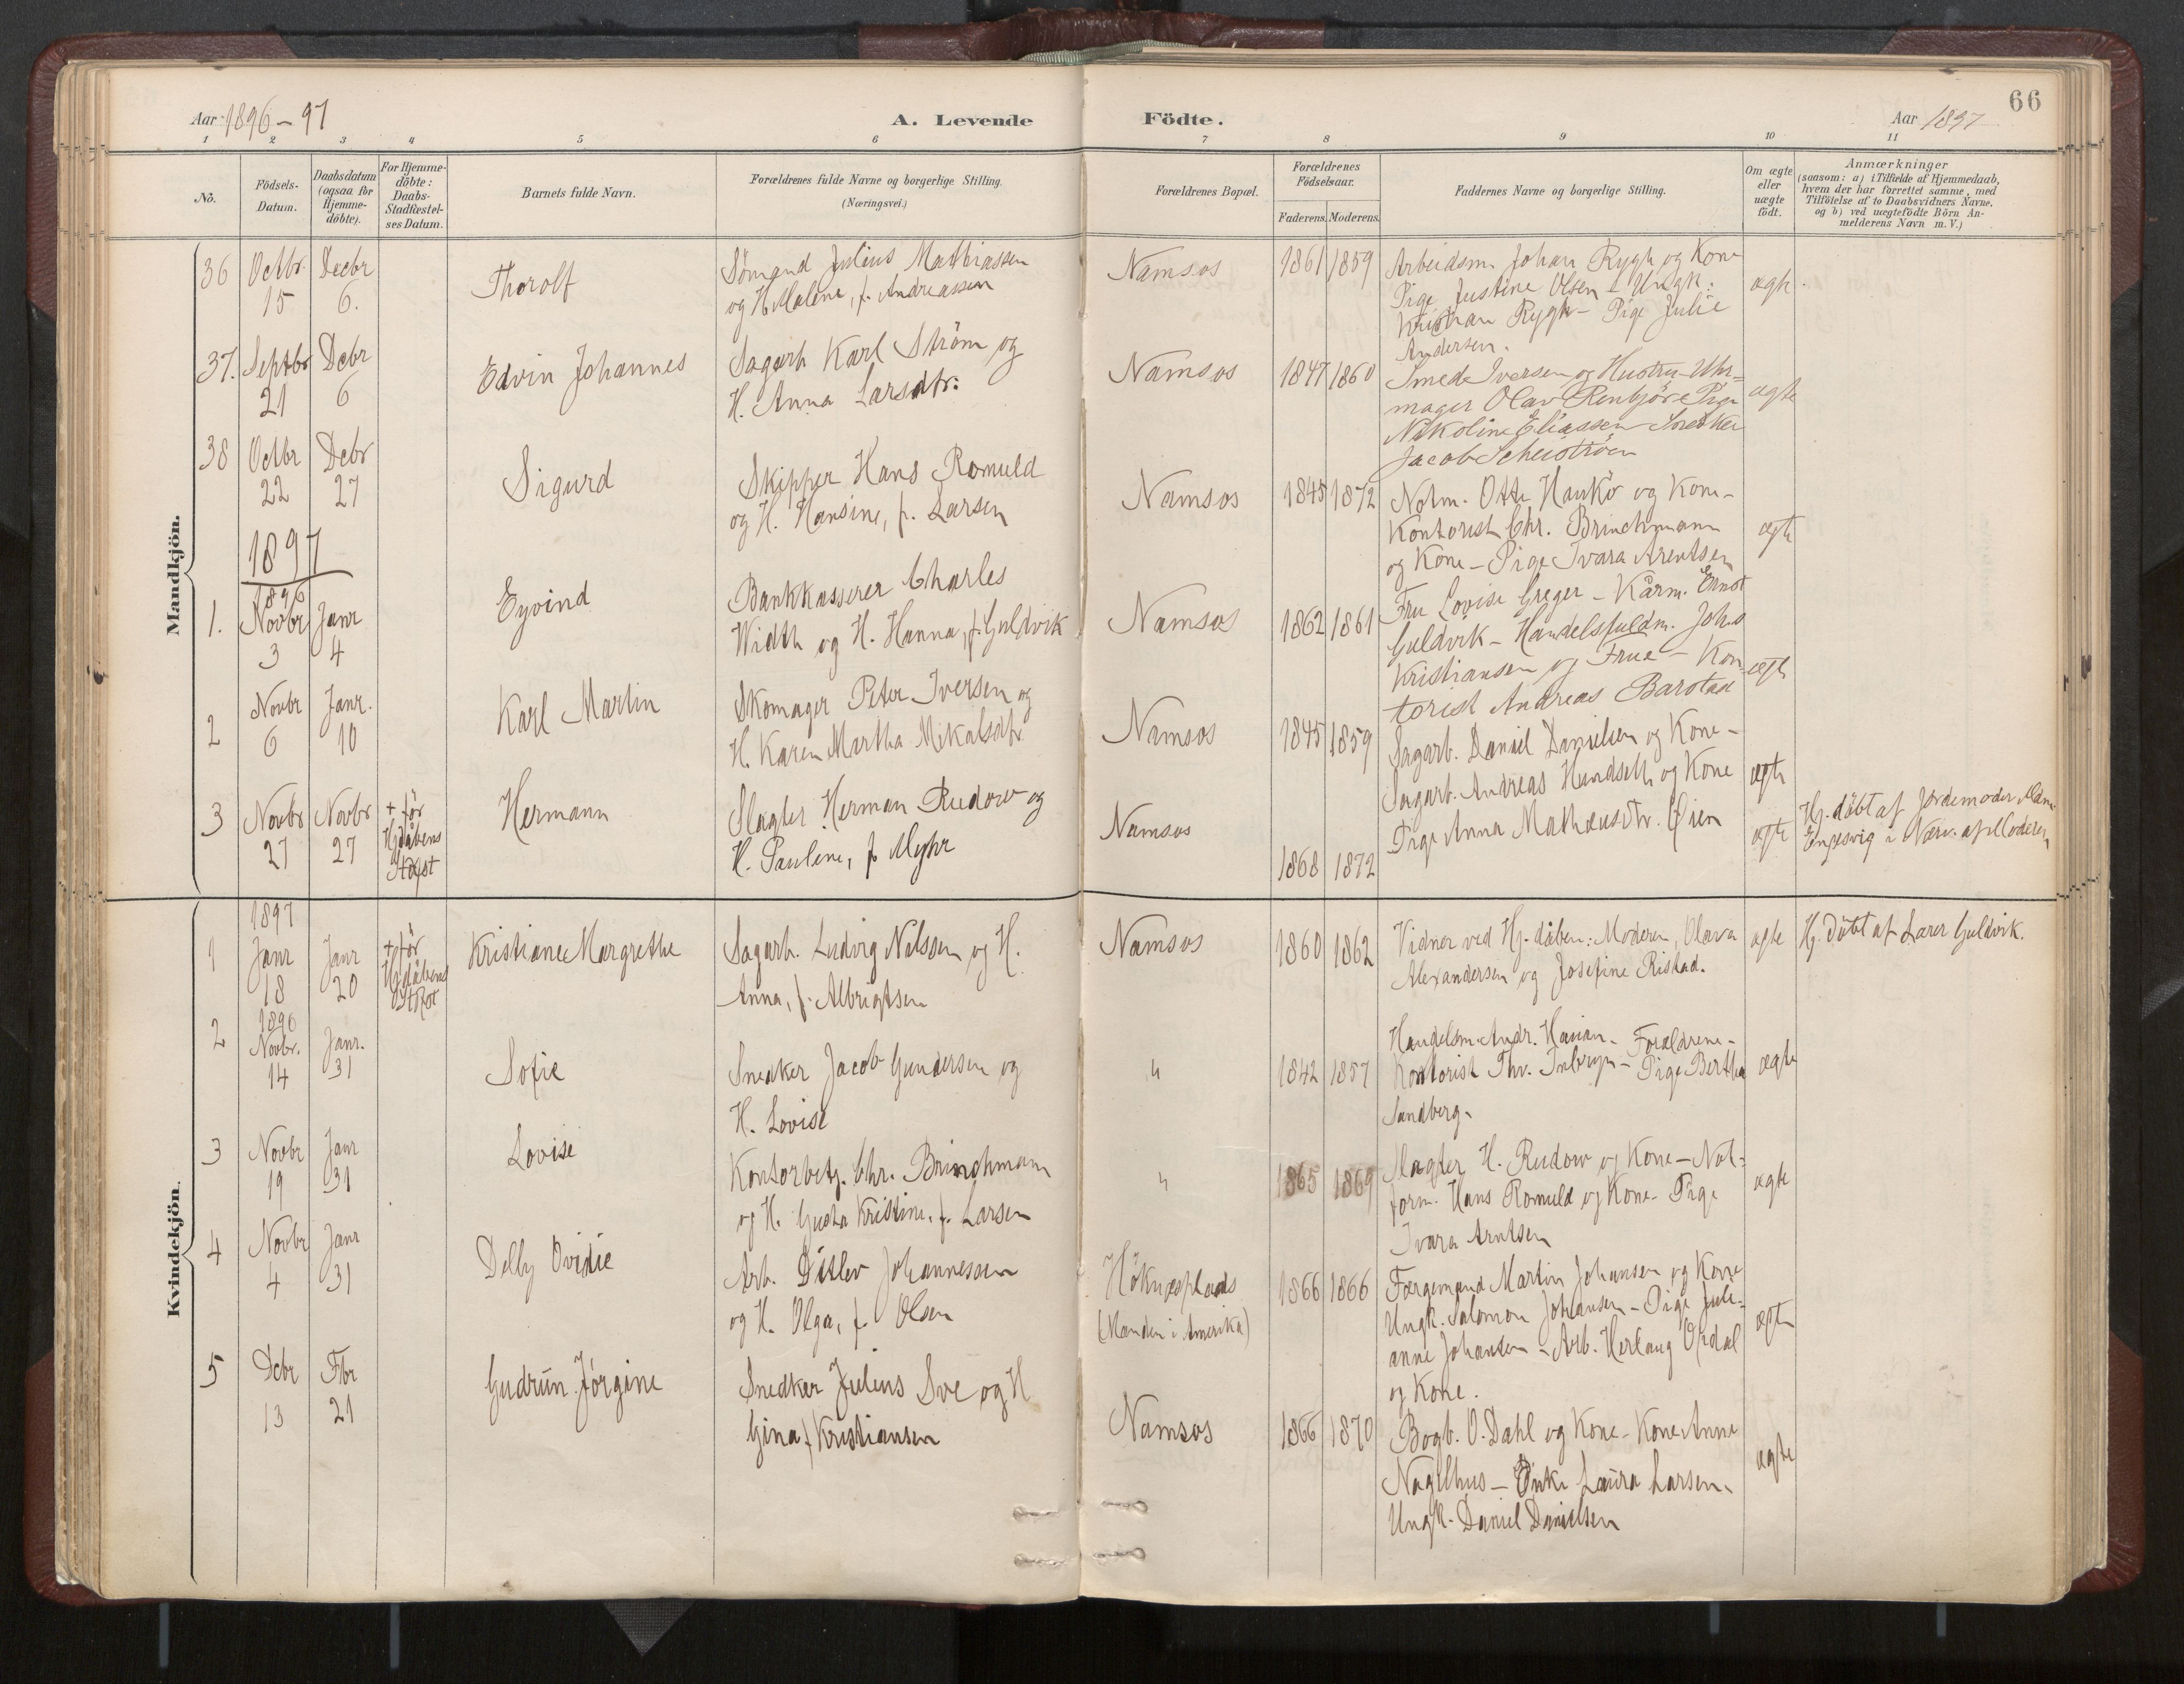 66
Aar 1896-97
A. Levende Födte.
Aar 1897
1 2 3 4 5 6 7 8 9 10 11
No.
Födsels-Datum.
Daabsdatum (ogsaa for Hjemme-döbte).
For Hjemme-döbte: Daabs-Stadfæstel-ses Datum.
Barnets fulde Navn.
Forældrenes fulde Navne og borgerlige Stilling.
(Næringsvei.)
Forældrenes Bopæl.
Forældrenes Födselsaar.
Faderens. Moderens.
Faddernes Navne og borgerlige Stilling.
Om ægte eller uægte födt.
Anmærkninger
(saasom: a) i Tilfælde af Hjemmedaab,
hvem der har forrettet samme, med
Tilföielse af to Daabsvidners Navne,
og b) ved uegtefödte Börn An-
melderens Navn m. V.)
Mandkjön.
36 Octbr. 15 Decbr 6.
Thorolf
Sömand Julius Mathiassen
og H. Malene, f. Andreassen
Namsos
1861 1859
Arbeidsm. Johan Rygh og Kone
Pige Justine Olsen - Ungk:
Kristian Rygh - Pige Julie
Andersen.
ægte.
37. Septbr 21 Debr 6
Edvin Johannes
Sagarb Karl Ström og
H. Anna Larsdtr.
Namsos
1847 1860
Smed Iversen og Hustru - Uhr-
mager Olav Pige
Nikoline Eliassen Snedker
Jacob
ægte
38 Octbr 22 Debr 27
Sigurd
Skipper Hans Romuld
og H. Hansine, f. Larsen
Namsos
1845 1872
Notm. Otto Haukö og Kone -
Kontorist Chr. Brinchmann
og Kone - Pige Ivara Arentsen
ægte
1897
1896
1. Novbr 3 Janr 4
Eyvind
Bankkasserer Charles
Width og H. Hanna, f. Guldvik
Namsos
1862 1861
Fru Lovise Greger - Ernst
Guldvik - Handelsfuldm. Johs
Kristiansen og Frue - Kon-
torist Andreas Barstad
ægte
2 Novbr 6 Janr. 10
Karl Martin
Skomager Peter Iversen og
H. Karen Martha Mikalsdtr
Namsos
1845 1859
Sagarb. Daniel Danielsen og Kone -
Sagarb. Andreas Hundseth og Kone
Pige Anna Mathæusdtr. Öien
ægte
3 Novbr 27 Novbr 27
+ för Hjdåbens Stafst
Hermann
Slagter Herman Rudow og
H. Pauline, f. Myhr
Namsos
1868 1872
ægte
Hj. döbt af Jordemoder
Engesvig i Nærv. af Moderen
Kvindekjön.
1897
1 Janr 18 Janr 20
+ för Hjdåbens
Kristiane Margrethe
Sagarb. Ludvig Nilssen og H.
Anna, f. Albrigtsen
Namsos
1860 1862
Vidner ved Hj.dåben: Moderen, Olava
Alexandersen og Josefine Ristad.
ægte
Hj. döbt af Lærer Guldvik.
1896
2 Novbr. 14 Janr. 31
Sofie
Snedker Jacob Gundersen og
H. Lovise
"
1842 1857
Handelsm. Andr. Havian - Forældrene -
Kontorist Thv. - Pige Bertha
Sandberg.
ægte
3 Novbr 19 Janr 31
Lovise
Kontorbetj. Chr. Brinchmann
og H. Gusta Kristine, f. Larsen
"
1865 1869
Slagter H. Rudow og Kone - Not-
form. Hans Romuld og Kone - Pige
Ivara Arntsen
ægte
4 Novbr 4 Janr 31
Delly Ovidie
Arb. Ditlev Johannessen
og H. Olga, f. Olsen
Höknæsplads
(Manden i Amerika)
1866 1866
Færgemand Martin Johansen og Kone
Ungk. Salomon Johansen - Pige Juli-
anne Johansen - Arb. Herlaug Opdal
og Kone.
ægte
5 Dcbr 13 Fbr 21
Gudrun Jörgine
Snedker Julius Sve og H
Gina, f. Kristiansen
Namsos
1866 1870
Bogb. O. Dahl og Kone - Kone Anne
Nagelhus - Enke Laura Larsen.
Ungk. Daniel Danielsen
ægte